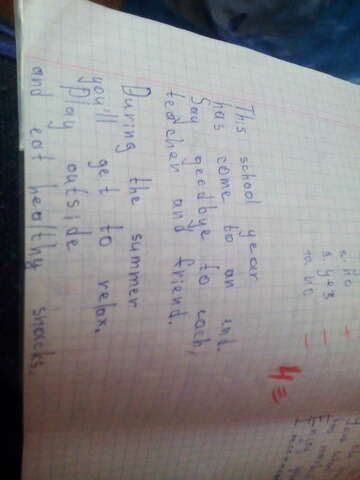 no
yes
no
4=
This school year
has come to an end.
Say goodbye to each,
teacher and friend.
During the summer
you'll get to relax,
play outside
and eat healthy snacks.